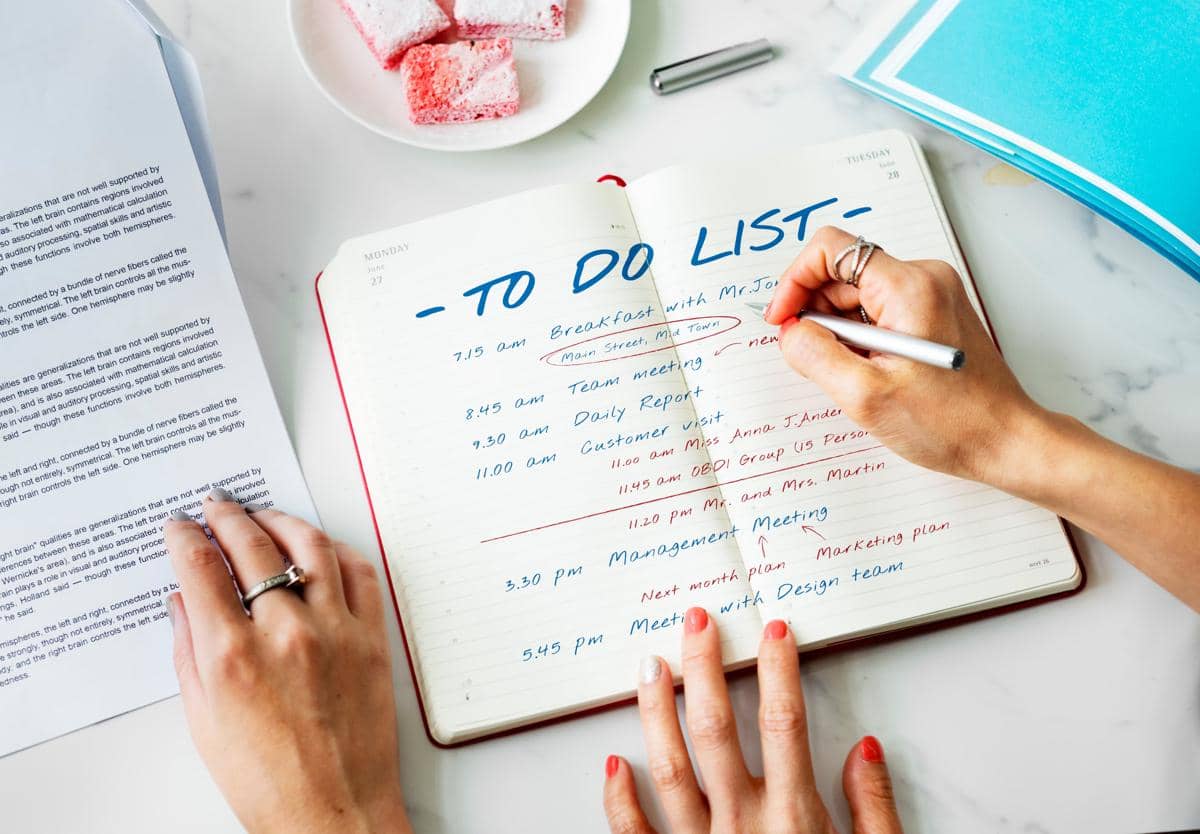 eralizations that are not well supported by
as. The left brain contains regions involved
so associated with mathematical calculation
auditory processing, spatial skills and artistic
gh these functions involve both hemispheres.
connected by a bundle of nerve fibers called the
symmetrical. The left brain controls all the mus-
ntrols the left side. One hemisphere may be slightly
alities are generalizations that are not well supported by
een these areas. The left brain contains regions involved
area), and is also associated with mathematical calculation
le in visual and auditory processing, spatial skills and artistic
said — though these functions involve both hemispheres.
he left and right, connected by a bundle of nerve fibers called the
ough not entirely, symmetrical. The left brain controls all the mus-
right brain controls the left side. One hemisphere may be slightly
ght brain" qualities are generalizations that are not well supported by
ferences between these areas. The left brain contains involved
Wernicke's area), and is also associated calculation
ain plays a role in visual and auditory artistic
ngs, Holland said — though these function
he said.
mispheres, the left and right, connected by a bu
e strongly, though not entirely, symmetrical.
dy, and the right brain controls the left side
edness.
MONDAY
June
27
TUESDAY
June
28
- TO DO LIST -
7.15 am Breakfast with Mr.Jo
Main Street, Mid Town
8.45 am Team meeting new
9.30 am Daily Report
11.00 am Customer visit
11.00 am Miss Anna J.Ander
11.45 am OBDI Group (15 Person
11.20 pm Mr. and Mrs. Martin
3.30 pm Management Meeting
Next month plan Marketing plan
5.45 pm Meeti with Design team